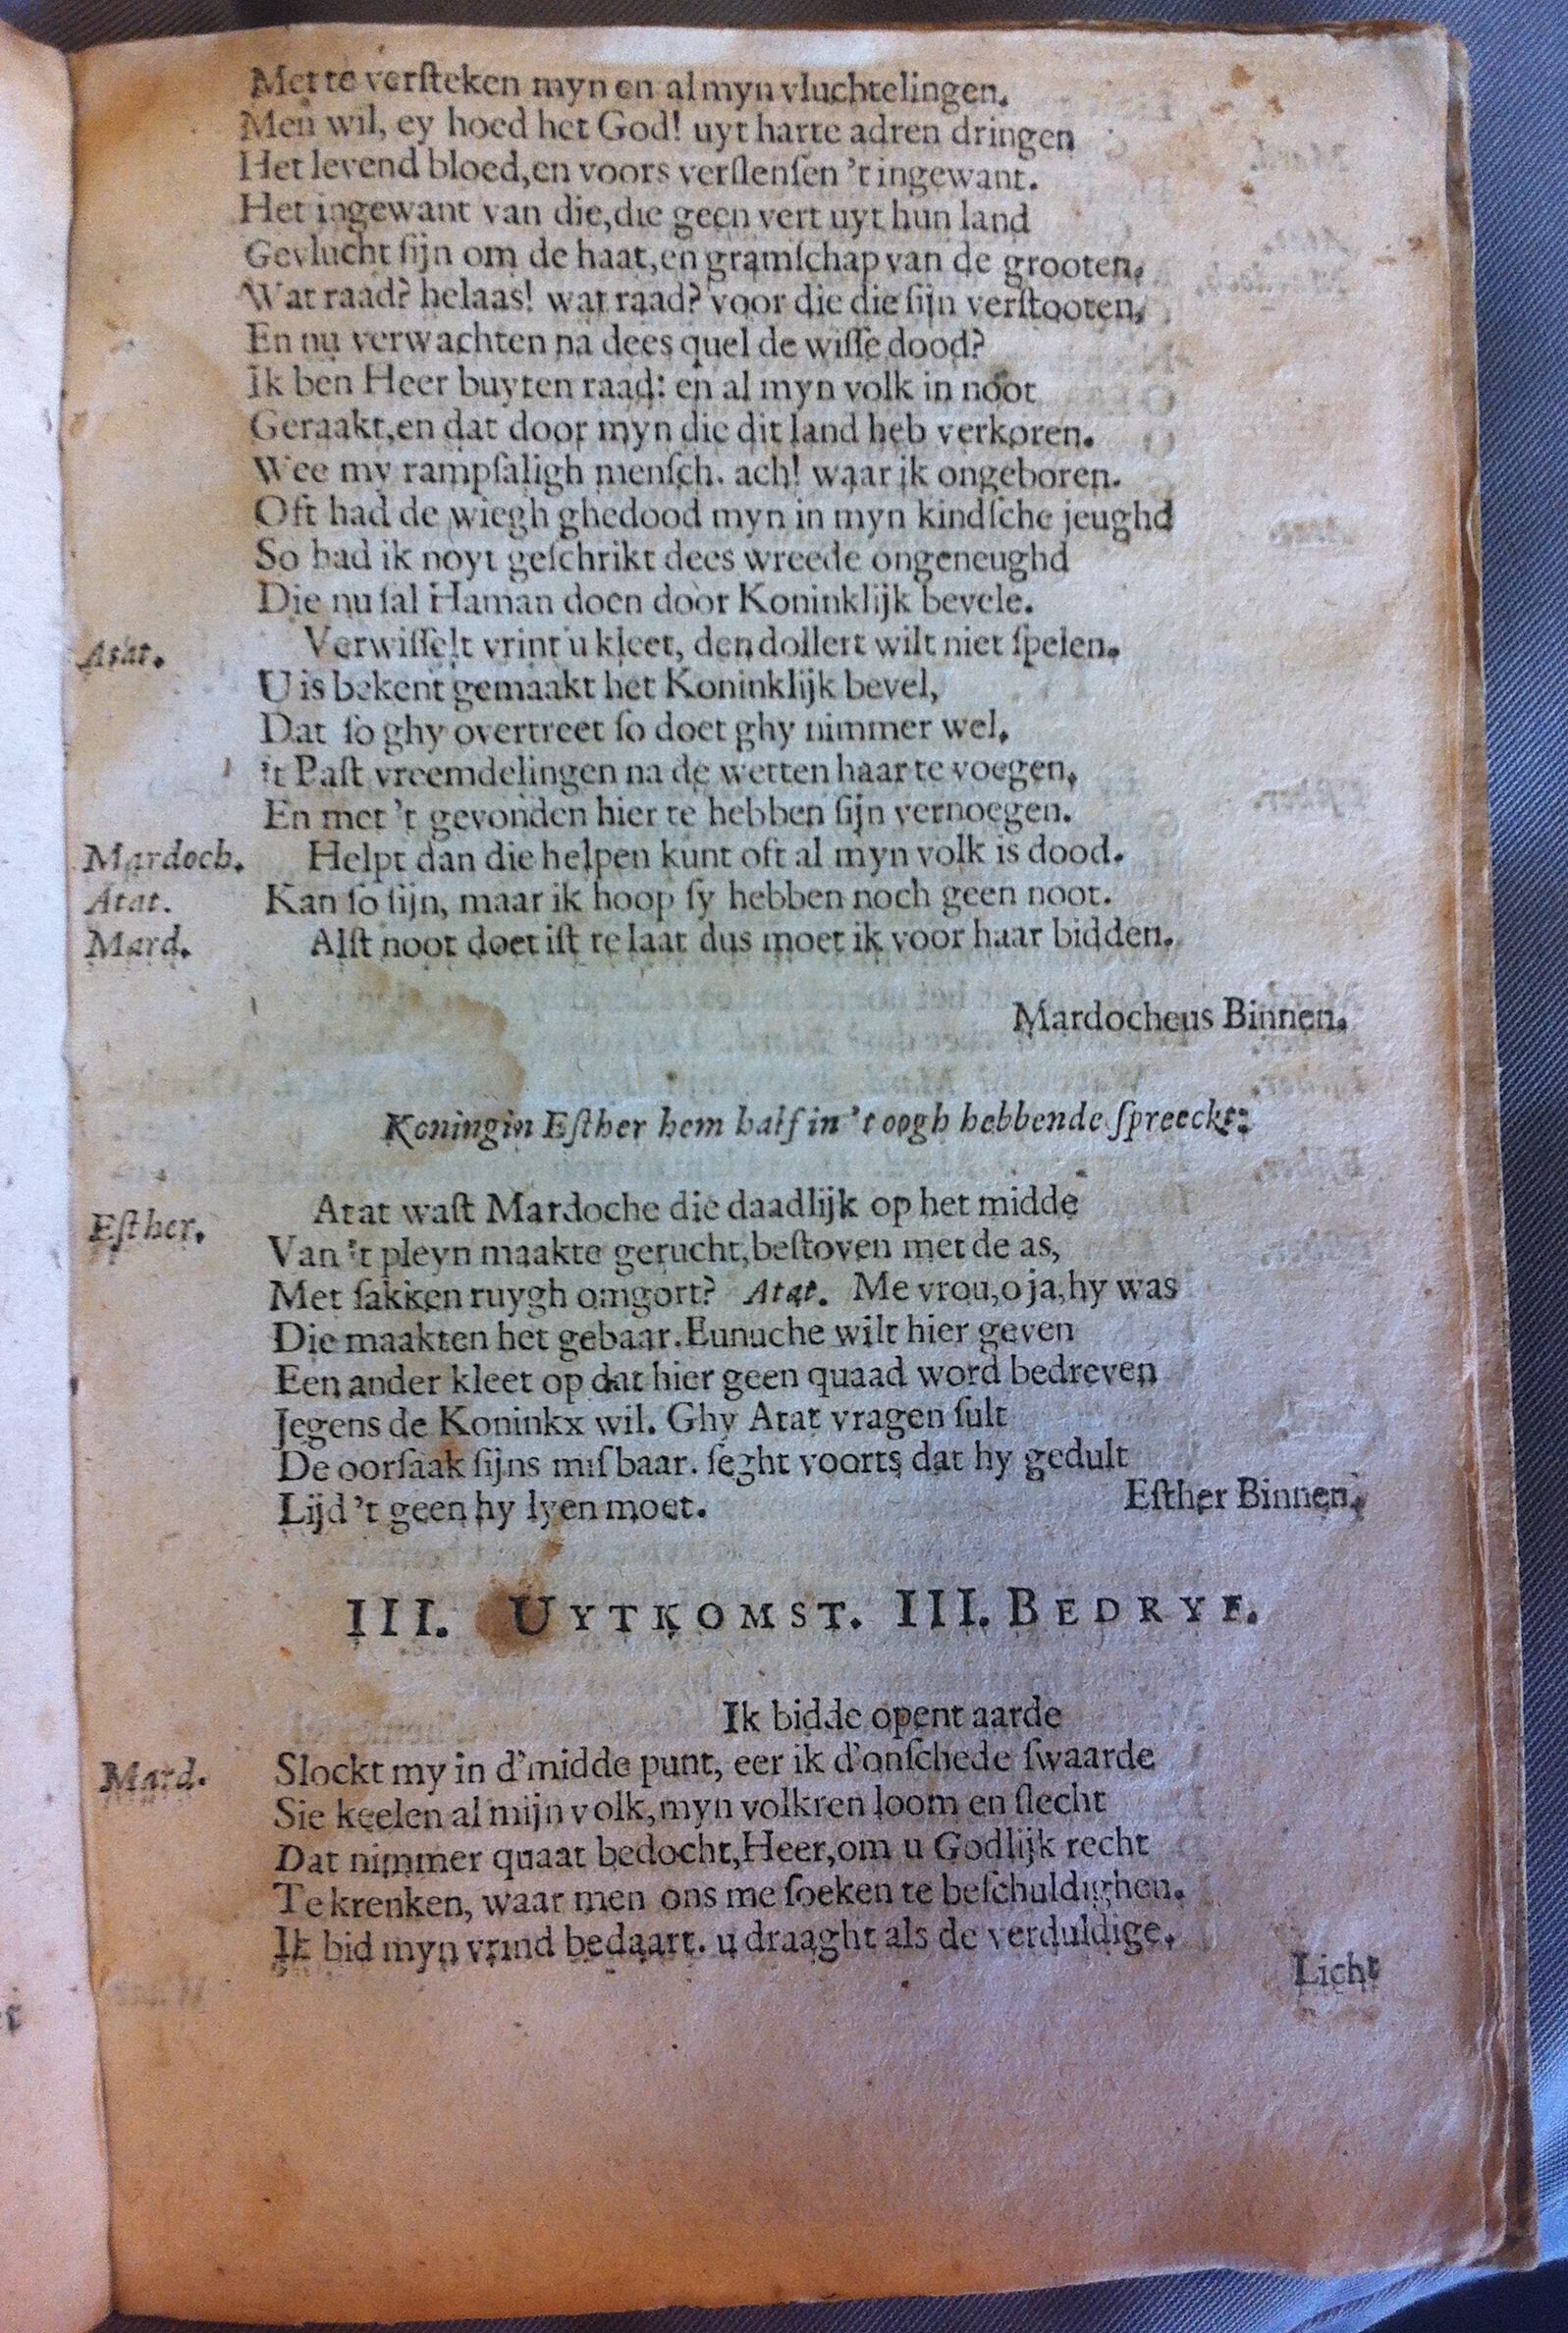 Met te verſteken myn en al myn vluchtelingen.
Men wil, ey hoed het God! uyt harte adren dringen
Het levend bloed, en voors verſlenſen 't ingewant.
Het ingewant van die, die geen vert uyt hun land
Gevlucht ſijn om de haat, en gramſchap van de grooten,
Wat raad? helaas! wat raad? voor die die ſijn verſtooten,
En nu verwachten na dees quel de wiſſe dood?
Ik ben Heer buyten raad: en al myn volk in noot
Geraakt, en dat door myn die dit land heb verkoren.
Wee my rampſaligh menſch. ach! waar ik ongeboren.
Oft had de wiegh ghedood myn in myn kindſche jeughd
So had ik noyt geſchrikt dees wreede ongeneughd
Die nu ſal Haman doen door Koninklijk bevele.
Atat. Verwiſſelt vrint u kleet, den dollert wilt niet ſpelen.
U is bekent gemaakt het Koninklijk bevel,
Dat ſo ghy overtreet ſo doet ghy nimmer wel,
't Paſt vreemdelingen na de wetten haar te voegen,
En met 't gevonden hier te hebben ſijn vernoegen.
Mardoch. Helpt dan die helpen kunt oft al myn volk is dood.
Atat. Kan ſo ſijn, maar ik hoop ſy hebben noch geen noot.
Mard. Alſt noot doet iſt te laat dus moet ik voor haar bidden.
Mardocheus Binnen.
Koningin Eſther hem half in 't oogh hebbende ſpreeckt:
Eſther. Atat waſt Mardoche die daadlijk op het midde
Van 't pleyn maakte gerucht, beſtoven met de as,
Met ſakken ruygh omgort? Atat. Me vrou, o ja, hy was
Die maakten het gebaar. Eunuche wilt hier geven
Een ander kleet op dat hier geen quaad word bedreven
Jegens de Koninkx wil. Ghy Atat vragen ſult
De oorſaak ſijns miſbaar. ſeght voorts dat hy gedult
Lijd 't geen hy lyen moet. Eſther Binnen.
III. UYTKOMST. III. BEDRYF.
Ik bidde opent aarde
Mard. Slockt my in d'midde punt, eer ik d'onſchede ſwaarde
Sie keelen al mijn volk, myn volkren loom en ſlecht
Dat nimmer quaat bedocht, Heer, om u Godlijk recht
Te krenken, waar men ons me ſoeken te beſchuldighen.
Ik bid myn vrind bedaart. u draaght als de verduldige.
Licht